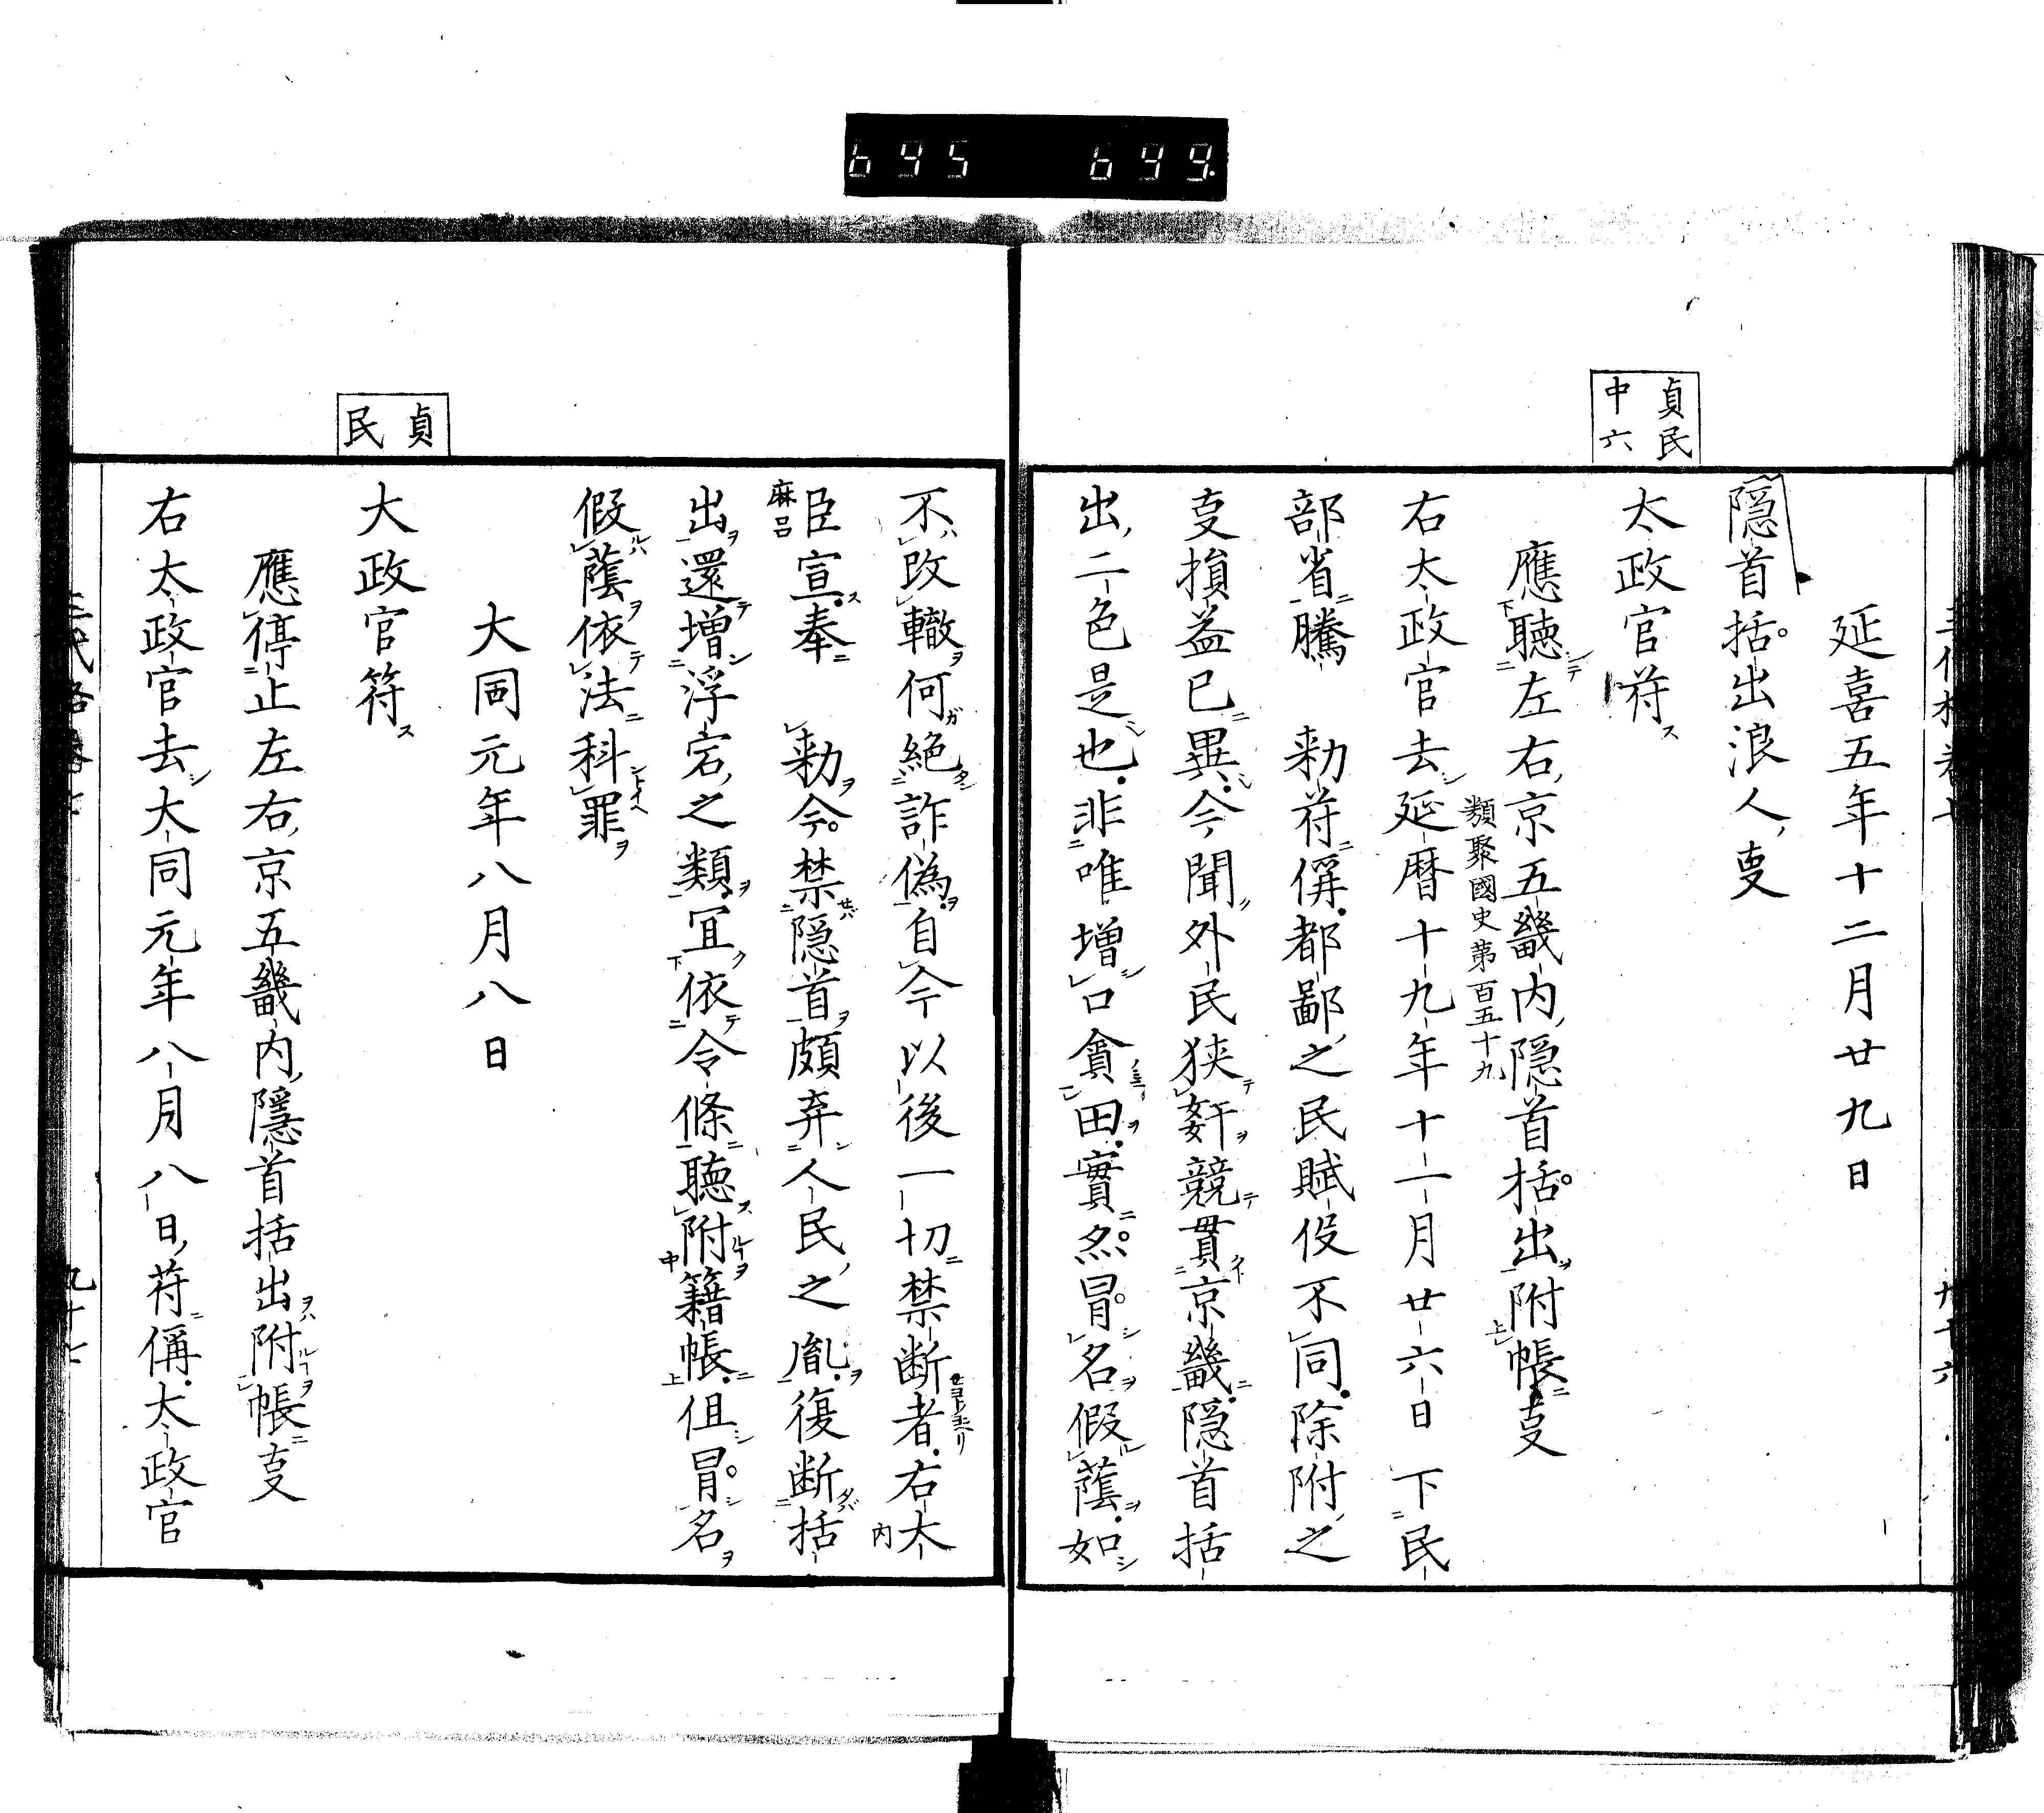 延喜五年十二月廿九日
隠首括出浪人事
貞民
中六
太政官符ス
應聴左右京五畿内隠首括出附帳事
類聚國史第百五十九
右太政官去延暦十九年十一月廿六日下民
部省騰 勅符偁都鄙之民賦役不同除附之
事損益已異今聞外民狭奸競貫京畿隠首括
出二色是也非唯増口貪田實亦冒名假蔭如
不改轍何絶詐偽自今以後一切禁断者右大
内
麻呂
臣宣奉 勅今禁隠首頗弃人民之胤復断括
出還増浮宕之類冝依令條聴附籍帳但冒名
假蔭依法科罪
大同元年八月八日
貞
民
大政官符ス
應停止左右京五畿内隱首括出附帳事
右太政官去大同元年八月八日符偁太政官